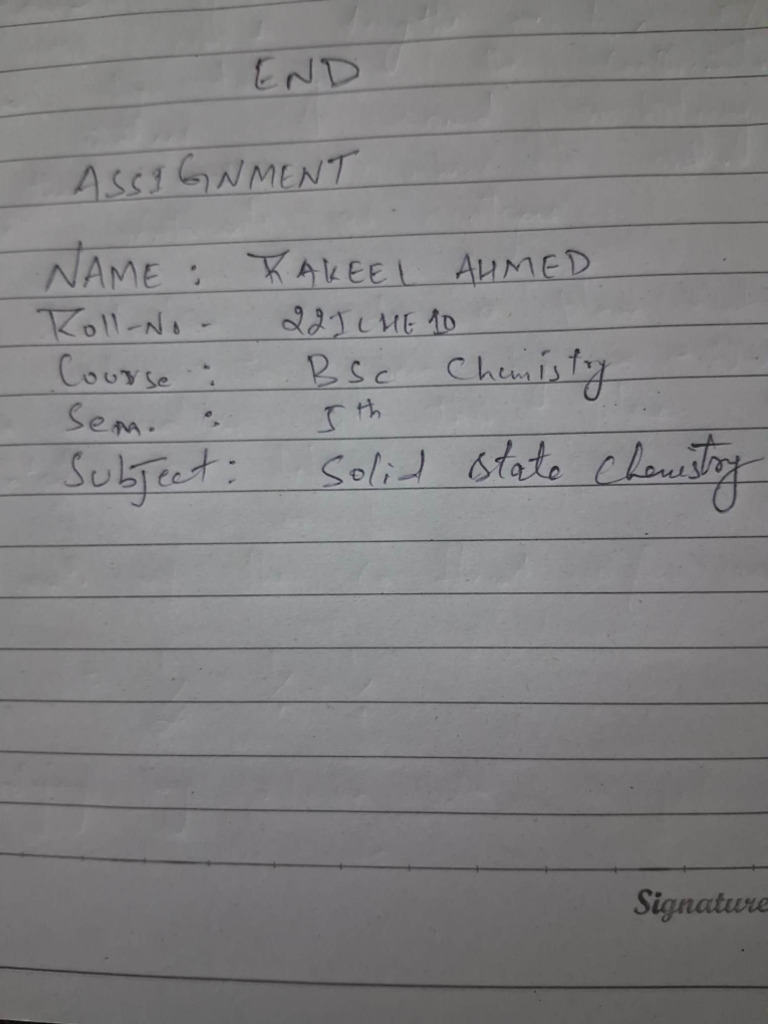 END
ASSIGNMENT
NAME : RAKEEL AHMED
Roll-No -
Course : BSc Chemistry
Sem. : 5th
Subject : Solid state Chemistry
Signature